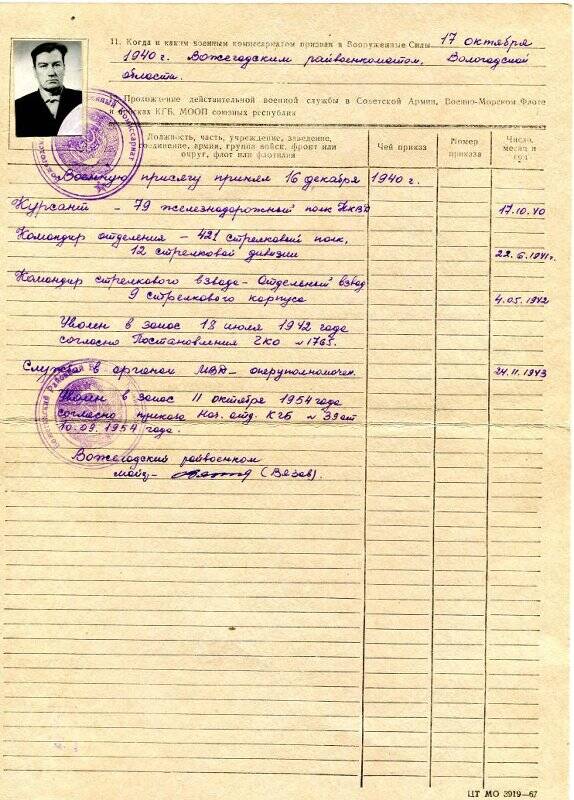 11. Когда и каким военным комиссариатом призван в Вооруженные Силы 17 октября
1940 г. Вожегодским райвоенкоматом, Вологодской
области.
Прохождение действительной военной службы в Советской Армии, Военно-Морском Флоте
и войсках КГБ, МООП союзных республик
Должность, часть, учреждение, заведение, соединение, армия, группа войск, фронт или округ, флот или флотилия
Чей приказ
Номер приказа
Число, месяц и год
Военную присягу принял 16 декабря 1940 г.
Курсант - 79 железнодорожный полк НКВД 17.10.40
Командир отделения - 421 стрелковый полк,
12 стрелковой дивизии 22.6.1941г
Командир стрелкового взвода - Отдельный взвод
9 стрелкового корпуса 4.05.1942
Уволен в запас 18 июля 1942 года
согласно Постановления ГКО №1765.
Служба в органах МВД - оперуполномочен. 24.11.1943
Уволен в запас 11 октября 1954 года
согласно приказа нач. отд. КГБ № 39 от
10.09.1954 года.
Вожегодский райвоенком
(Вязов).
ЦТ МО 3919—67